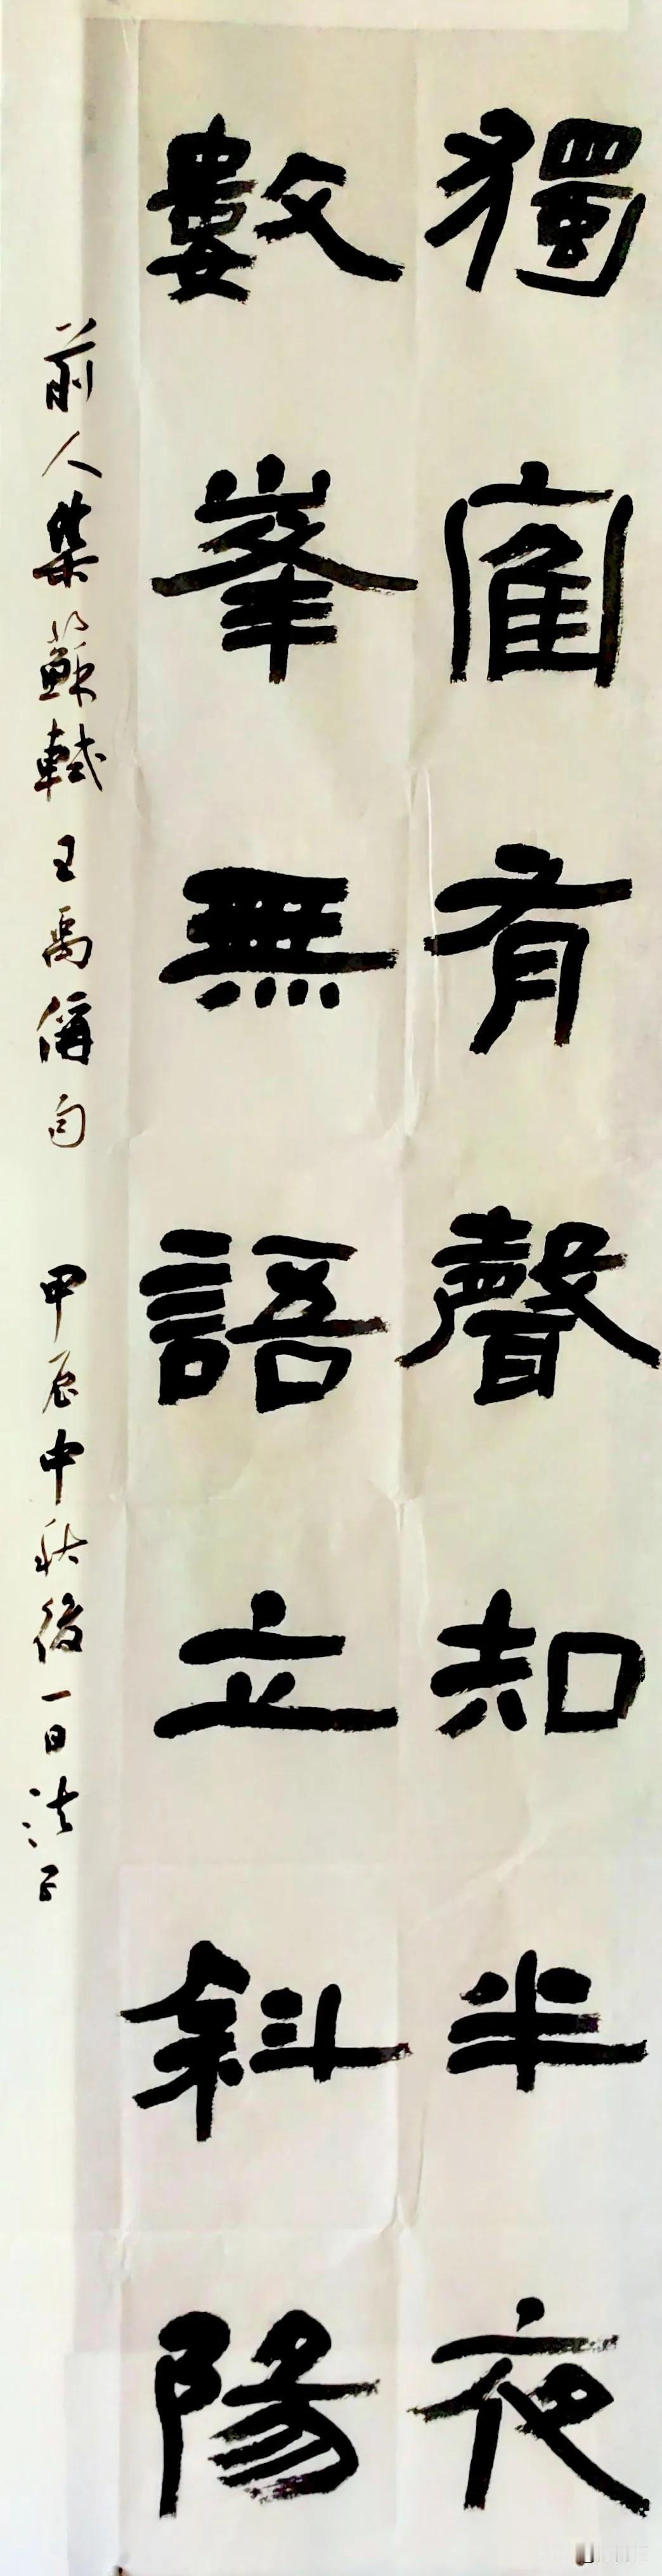 獨寉有聲知半夜
數峯無語立斜陽
前人集蘇軾王禹偁句 甲辰中秋後一日法